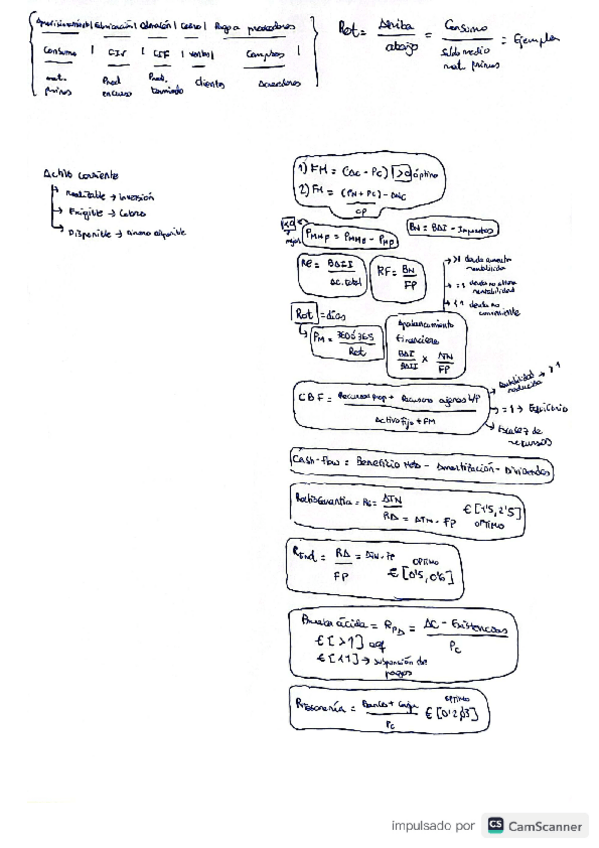 Aprovisionamiento | Fabricación | Almacén | Cobro | Pago a proveedores
Consumo | CIV | CIF | Ventas | Compras |
mat. primas Prod encurso Prod. terminado clientes Acreedores
Rot = Arriba / abajo = Consumo / Saldo medio mat. primas = Ejemplo
Activo corriente
→ Realizable → Inversión
→ Exigible → Cobros
→ Disponible → dinero disponible
1) FM = (AC - PC) >0 óptimo
2) FM = (PN + PC) - ANC
CP
PMMp = PMMe - PMp
BN = BAI - Impuestos
RE = BAII / Ac. total
RF = BN / FP
→ >1 deuda aumenta rentabilidad
→ =1 deuda no altera rentabilidad
→ <1 deuda no conveniente
Rot = días
PM = 360 ó 365 / Rot
Apalancamiento Financiero
BAI / BAII x AN / FP
CBF = Recursos Prop + Recursos ajenos L/P / Activo Fijo + FM
→ Rentabilidad reducida → >1
→ = 1 → Equilibrio
→ Escasez de recursos
Cash-flow = Beneficio Neto - Amortización - Dividendos
Ratio Garantía = RG = ATN / RA = ATN - FP € [1'5, 2'5] OPTIMO
REnd = RA = ATN - FP / FP OPTIMO € [0'5, 0'6]
Prueba ácida = RPA = AC - Existencias / Pc
€ [>1] eq
€ [<1] → suspensión de pagos
RTesorería = Bancos + Caja / Pc OPTIMO € [0'2, 0'3]
impulsado por CS CamScanner